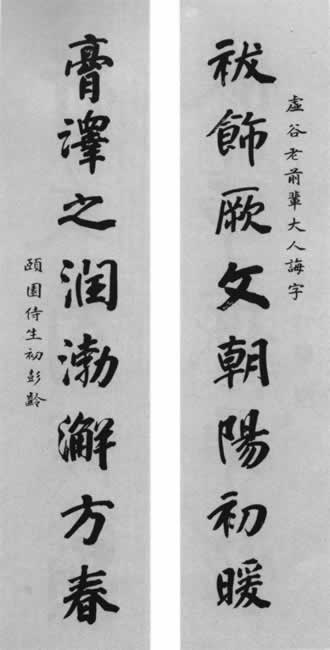 虛谷老前輩大人誨字
祓飾厥文朝陽初暖
膏澤之润渤澥方春
頤園侍生初彭齡